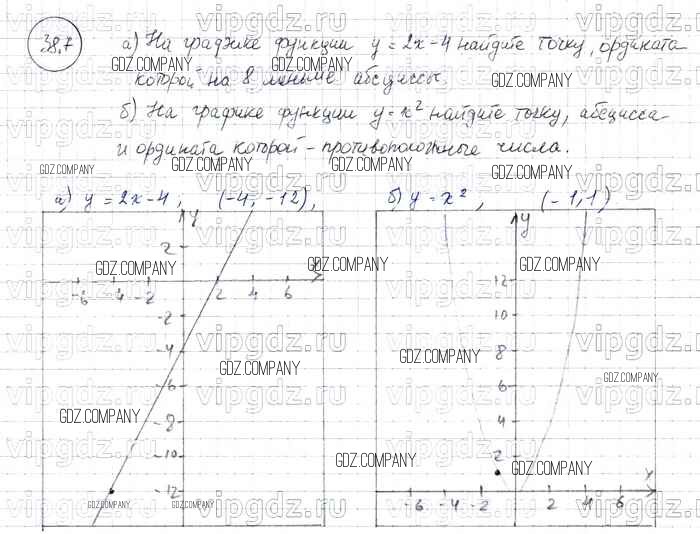 38.7
а) На графике функции y = 2x - 4 найдите точку, ордината
которой на 8 меньше абсциссы.
б) На графике функции y = x² найдите точку, абсцисса
и ордината которой - противоположные числа.
а) y = 2x - 4, (-4; -12),
б) y = x², (-1; 1)
y
2
-6 -4 -2 2 4 6
-2
-4
-6
-8
-10
-12
y
12
10
8
6
4
2
x
-6 -4 -2 2 4 6
GDZ.COMPANY
vipgdz.ru